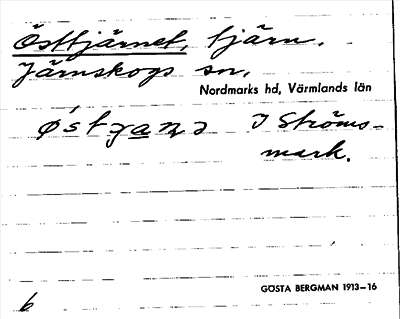 Östtjärnet, tjärn.
Järnskogs sn,
Nordmarks hd, Värmlands län
I Ströms-
mark.
GÖSTA BERGMAN 1913–16
b